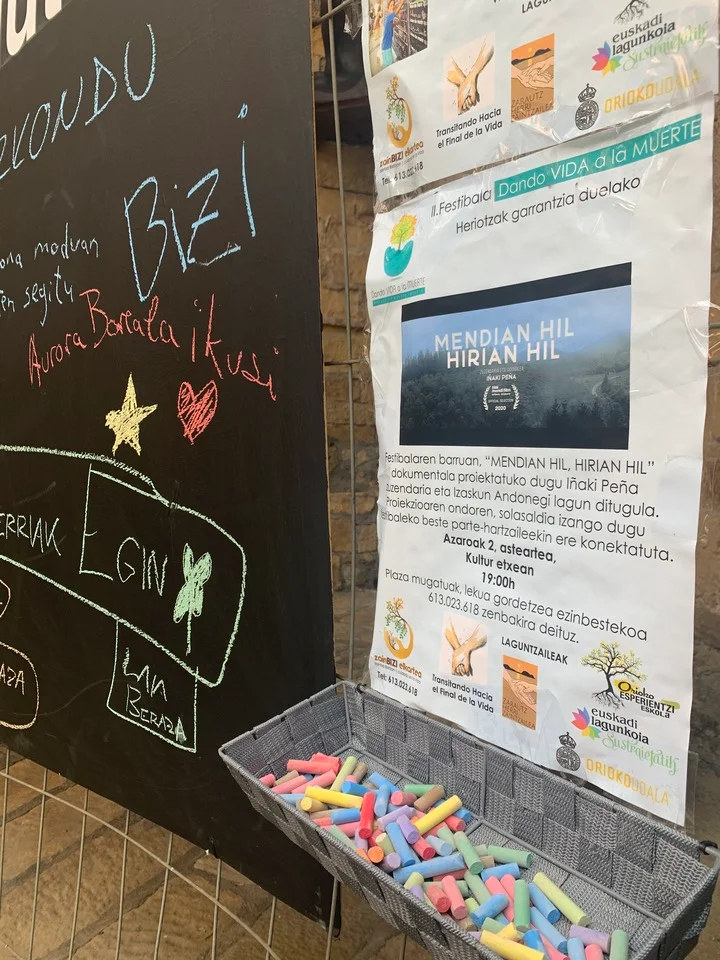 BiZi
ona moduan
segitu
Aurora Boreala ikusi
EGIN
LAN
BERAZA
Transitando Hacia
el Final de la Vida
euskadi
lagunkoia
Sustraietatik
ORIOKOUDALA
zainBIZI elkartea
Tel: 613.023.618
II.Festibala Dando VIDA a la MUERTE
Heriotzak garrantzia duelako
Dando VIDA a la MUERTE
MENDIAN HIL
HIRIAN HIL
IÑAKI PEÑA
OFFICIAL SELECTION
2020
Festibalaren barruan, "MENDIAN HIL, HIRIAN HIL"
dokumentala proiektatuko dugu Iñaki Peña
zuzendaria eta Izaskun Andonegi lagun ditugula.
Proiekzioaren ondoren, solasaldia izango dugu
festibaleko beste parte-hartzaileekin ere konektatuta.
Azaroak 2, asteartea,
Kultur etxean
19:00h
Plaza mugatuak, lekua gordetzea ezinbestekoa
613.023.618 zenbakira deituz.
LAGUNTZAILEAK
zainBIZI elkartea
Tel: 613.023.618
Transitando Hacia
el Final de la Vida
Orioko
ESPERIENTZI
ESKOLA
euskadi
lagunkoia
Sustraietatik
ORIOKOUDALA